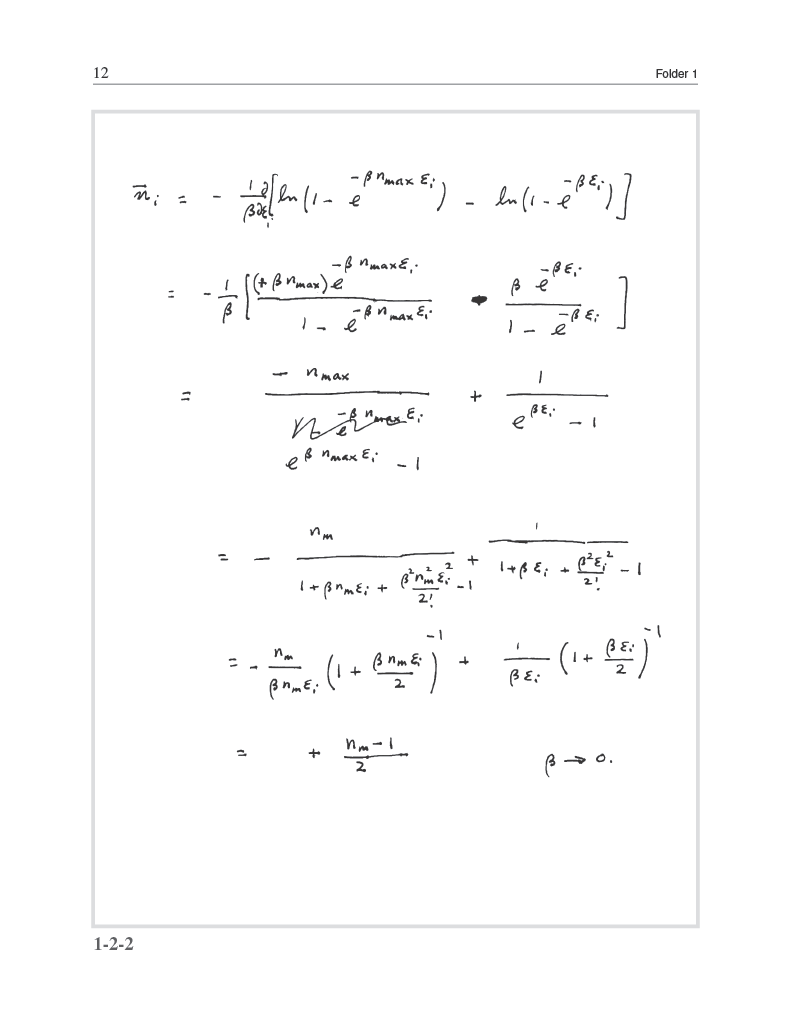 12 Folder 1
n̄ᵢ = - 1/β ∂/∂εᵢ [ln(1 - e^(-β n_max εᵢ)) - ln(1 - e^(-β εᵢ))]
= - 1/β [(+ β n_max) e^(-β n_max εᵢ) / (1 - e^(-β n_max εᵢ)) - β e^(-β εᵢ) / (1 - e^(-β εᵢ))]
= - n_max / (e^(β n_max εᵢ) - 1) + 1 / (e^(β εᵢ) - 1)
= - n_m / (1 + β n_m εᵢ + β² n_m² εᵢ² / 2! - 1) + 1 / (1 + β εᵢ + β² εᵢ² / 2! - 1)
= - n_m / (β n_m εᵢ) (1 + β n_m εᵢ / 2)^(-1) + 1 / (β εᵢ) (1 + β εᵢ / 2)^(-1)
= + (n_m - 1) / 2 β → 0.
1-2-2